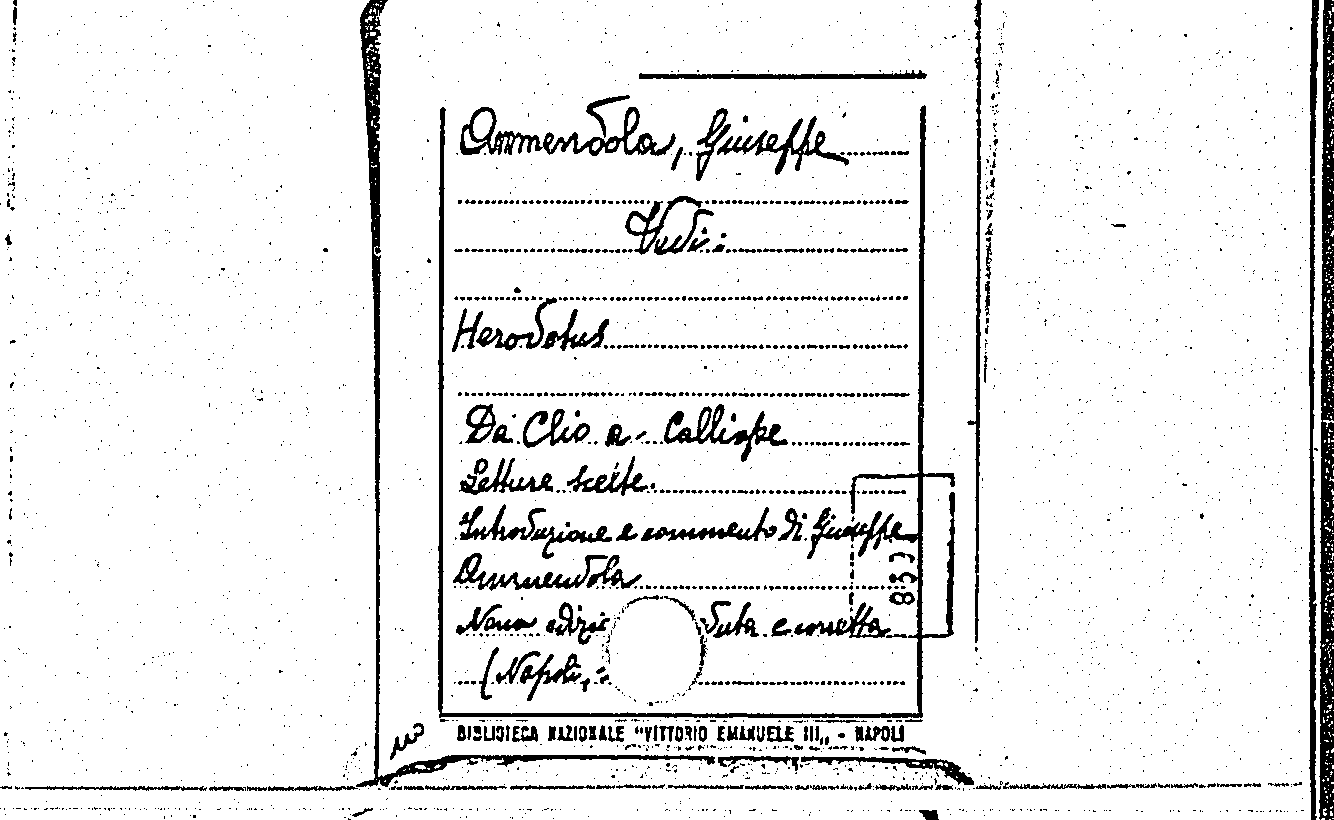 Ammendola, Giuseppe
Vedi:
Herodotus
Da Clio a Calliope
Letture scelte.
Introduzione e commento di Giuseppe
Ammendola
Nuova edizio duta e corretta
(Napoli,
857
BIBLIOTECA NAZIONALE "VITTORIO EMANUELE III„ - NAPOLI